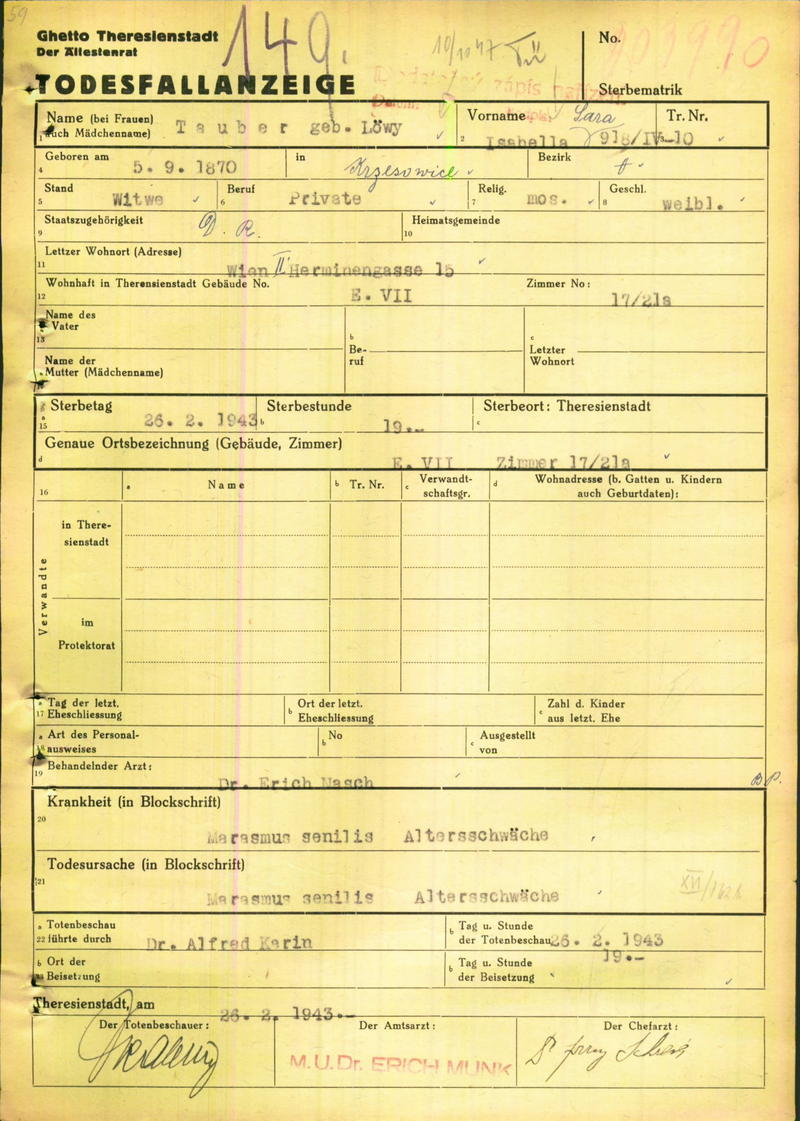 59
Ghetto Theresienstadt
Der Ältestenrat
149.
10/10 47
No.
TODESFALLANZEIGE
Sterbematrik
Name (bei Frauen)
auch Mädchenname)
1
Tauber geb. Löwy
Vorname
2
Sara
Isabella
Tr. Nr.
918/IV-10
Geboren am
4
5. 9. 1870
in
Krzesowice
Bezirk
Stand
5
Witwe
Beruf
6
Private
Relig.
7
mos.
Geschl.
8
weibl.
Staatszugehörigkeit
9
D. R.
Heimatsgemeinde
10
Lettzer Wohnort (Adresse)
11
Wien II Herminengasse 15
Wohnhaft in Therensienstadt Gebäude No.
12
E. VII
Zimmer No:
17/21a
Name des
Vater
13
b
Be-
ruf
c
Letzter
Wohnort
Name der
Mutter (Mädchenname)
Sterbetag
a
15
26. 2. 1943
Sterbestunde
b
19.-
Sterbeort: Theresienstadt
c
Genaue Ortsbezeichnung (Gebäude, Zimmer)
d
E. VII Zimmer 17/21a
16
a Name
b Tr. Nr.
c Verwandt-
schaftsgr.
d Wohnadresse (b. Gatten u. Kindern
auch Geburtdaten):
Verwandte
in There-
sienstadt
im
Protektorat
a Tag der letzt.
17 Eheschliessung
b Ort der letzt.
Eheschliessung
c Zahl d. Kinder
aus letzt. Ehe
a Art des Personal-
18 ausweises
b No
c Ausgestellt
von
Behandelnder Arzt:
19
Dr. Erich Nasch
Krankheit (in Blockschrift)
20
Marasmus senilis Altersschwäche
Todesursache (in Blockschrift)
21
Marasmus senilis Altersschwäche
a Totenbeschau
22 führte durch
Dr. Alfred Karin
b Tag u. Stunde
der Totenbeschau
26. 2. 1943
19.-
b Ort der
Beisetzung
b Tag u. Stunde
der Beisetzung
Theresienstadt, am
26. 2. 1943.-
Der Totenbeschauer:
Der Amtsarzt:
M.U.Dr. ERICH MUNK
Der Chefarzt: